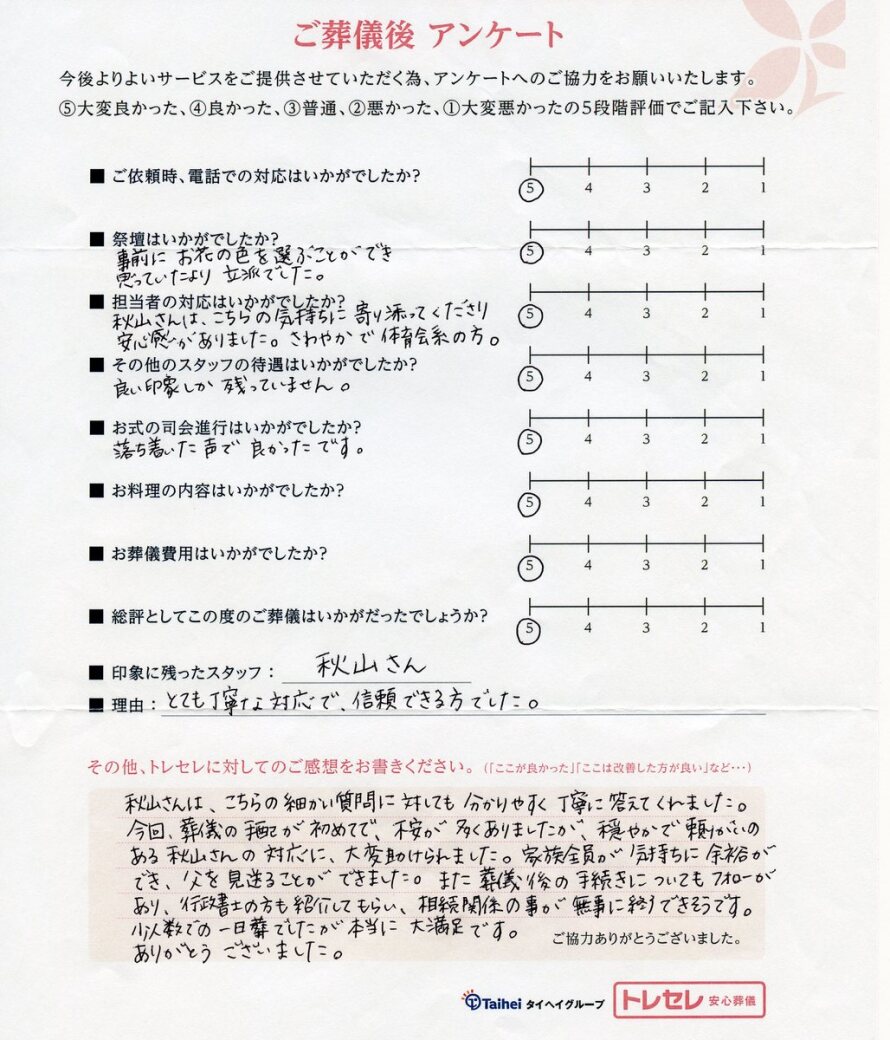 ご葬儀後 アンケート
今後よりよいサービスをご提供させていただく為、アンケートへのご協力をお願いいたします。
⑤大変良かった、④良かった、③普通、②悪かった、①大変悪かったの5段階評価でご記入下さい。
■ ご依頼時、電話での対応はいかがでしたか?
5 4 3 2 1
■ 祭壇はいかがでしたか?
5 4 3 2 1
事前に お花の色を選ぶことができ
思っていたより 立派でした。
■ 担当者の対応はいかがでしたか?
5 4 3 2 1
秋山さんは、こちらの気持ちに寄り添ってくださり
安心感がありました。さわやかで体育会系の方。
■ その他のスタッフの待遇はいかがでしたか?
5 4 3 2 1
良い印象しか残っていません。
■ お式の司会進行はいかがでしたか?
5 4 3 2 1
落ち着いた声で 良かったです。
■ お料理の内容はいかがでしたか?
5 4 3 2 1
■ お葬儀費用はいかがでしたか?
5 4 3 2 1
■ 総評としてこの度のご葬儀はいかがだったでしょうか?
5 4 3 2 1
■ 印象に残ったスタッフ: 秋山さん
■ 理由: とても丁寧な対応で、信頼できる方でした。
その他、トレセレに対してのご感想をお書きください。(「ここが良かった」「ここは改善した方が良い」など…)
秋山さんは、こちらの細かい質問に対しても分かりやすく丁寧に答えてくれました。
今回、葬儀の が初めてで、不安が多くありましたが、穏やかで頼りがいの
ある秋山さんの対応に、大変助けられました。家族全員が気持ちに余裕が
でき、父を見送ることができました。また葬儀後の手続きについてもフォローが
あり、行政書士の方も紹介してもらい、相続関係の事が無事に終了できそうです。
少人数での一日葬でしたが本当に大満足です。
ありがとうございました。
ご協力ありがとうございました。
Taihei タイヘイグループ トレセレ 安心葬儀